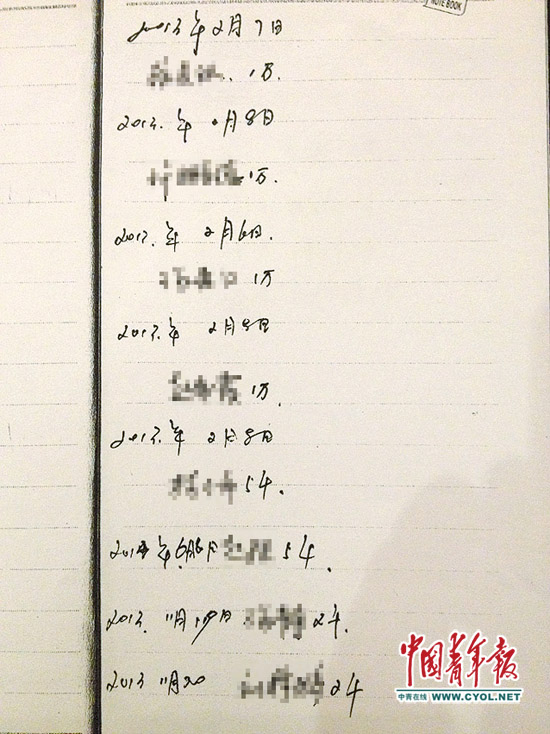 NOTE BOOK
2013年2月7日
1万.
2013.年2月8日
1万.
2013.年2月6日.
1万
2013.年2月8日
1万.
2013.年2月8日
5千.
5千.
2013.11月19日 2千.
2013 11月20 2千
中国青年报
中青在线 WWW.CYOL.NET